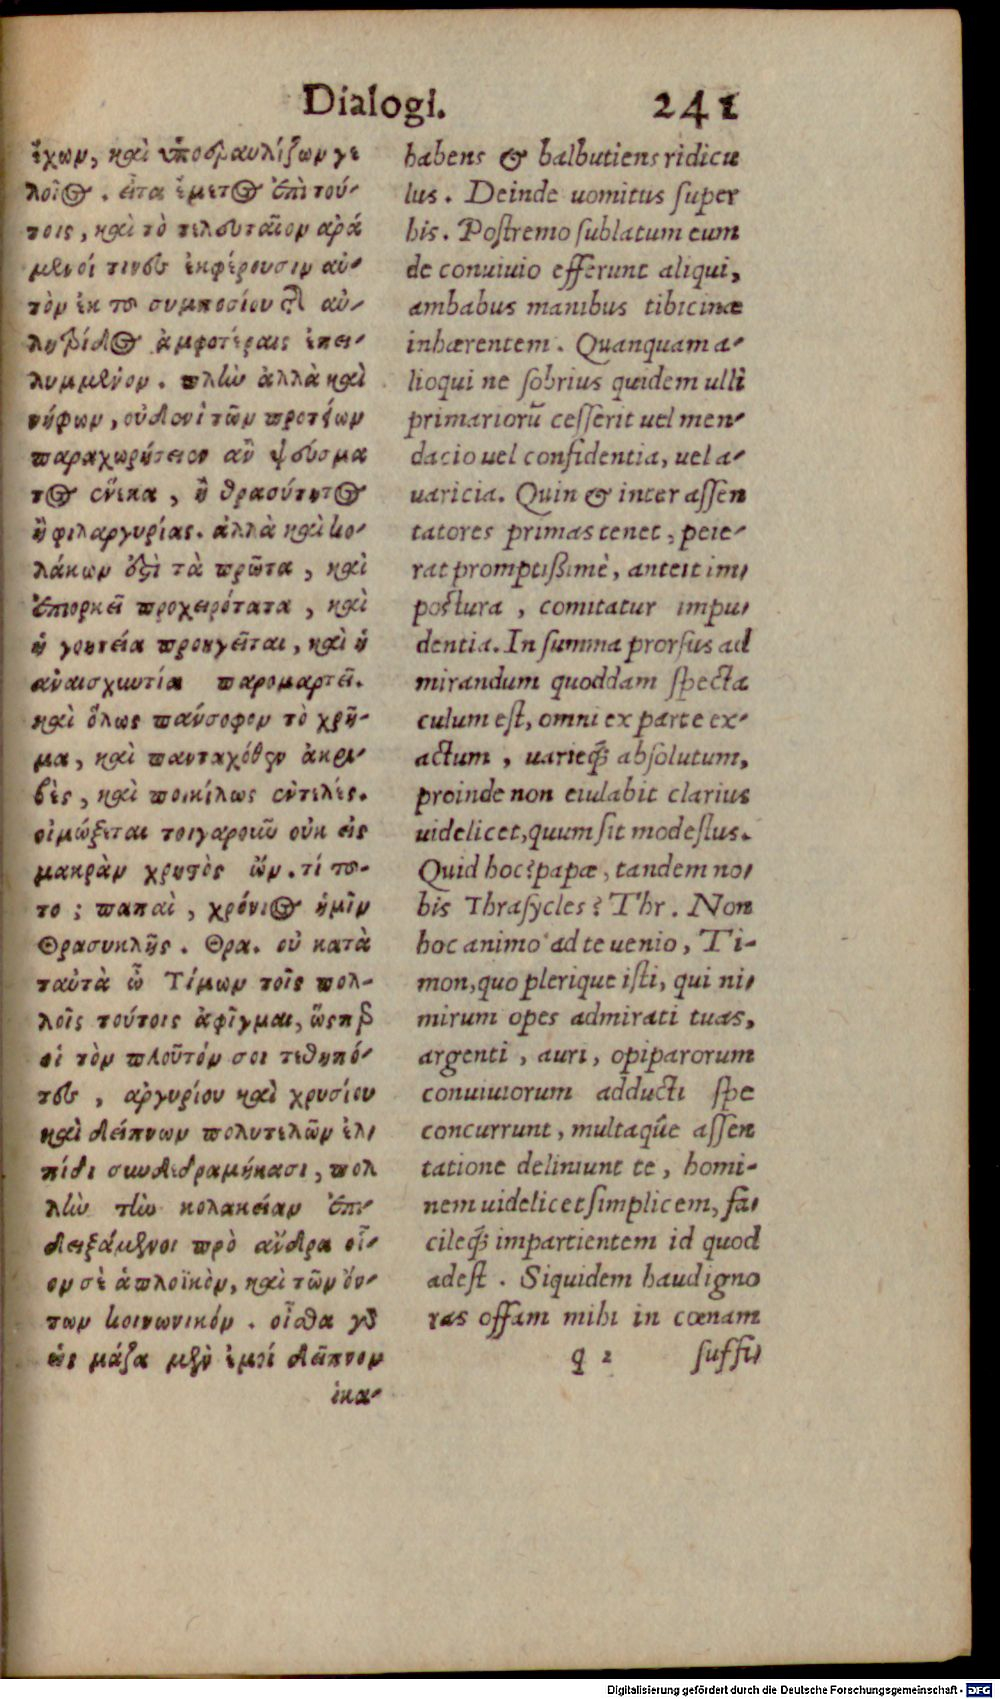 Dialogi. 241
ἔχων, καὶ ὑποτραυλίζων γε
λοῖος. εἶτα ἔμετος ἐπὶ τού-
τοις, καὶ τὸ τελευταῖον ἀρά
μενοί τινες ἐκφέρουσιν αὐ-
τὸν ἐκ τοῦ συμποσίου τῆς αὐ-
λητρίδος ἀμφοτέραις ἐπει-
λημμένον. πλὴν ἀλλὰ καὶ
νήφων, οὐδενὶ τῶν πρωτείων
παραχωρήσειεν ἂν ψεύσμα
τος ἕνεκα, ἢ θρασύτητος
ἢ φιλαργυρίας. ἀλλὰ καὶ κο-
λάκων ἐστὶ τὰ πρῶτα, καὶ
ἐπιορκεῖ προχειρότατα, καὶ
ἡ γοητεία προηγεῖται, καὶ ἡ
ἀναισχυντία παρομαρτεῖ.
καὶ ὅλως πάνσοφον τὸ χρῆ-
μα, καὶ πανταχόθεν ἀκρι-
βὲς, καὶ ποικίλως ἐντελές.
οἰμώξεται τοιγαροῦν οὐκ εἰς
μακρὰν χρηστὸς ὤν. τί τοῦ-
το; παπαὶ, χρόνιος ἡμῖν
Θρασυκλῆς. Θρα. οὐ κατὰ
ταὐτὰ ὦ Τίμων τοῖς πολ-
λοῖς τούτοις ἀφῖγμαι, ὥσπερ
οἱ τὸν πλοῦτόν σου τεθηπό-
τες, ἀργυρίου καὶ χρυσίου
καὶ δείπνων πολυτελῶν ἐλ-
πίδι συνδεδραμήκασι, πολ
λὴν τὴν κολακείαν ἐπι-
δειξάμενοι πρὸ ἄνδρα οἷ-
ον σὲ ἁπλοϊκὸν, καὶ τῶν ὄν-
των κοινωνικόν. οἶσθα γὰρ
ὡς μάζα μὲν ἐμοί δεῖπνον
ἱκα-
habens & balbutiens ridicu
lus. Deinde uomitus super
his. Postremo sublatum eum
de conuiuio efferunt aliqui,
ambabus manibus tibicinæ
inhærentem. Quanquam a-
lioqui ne sobrius quidem ulli
primariorū cesserit uel men-
dacio uel confidentia, uel a-
uaricia. Quin & inter assen
tatores primas tenet, peie-
rat promptissimè, anteit im-
postura, comitatur impu-
dentia. In summa prorsus ad
mirandum quoddam specta
culum est, omni ex parte ex-
actum, uarieq́; absolutum,
proinde non eiulabit clarius
uidelicet, quum sit modestus.
Quid hoc? papæ, tandem no-
bis Thrasycles? Thr. Non
hoc animo ad te uenio, Ti-
mon, quo plerique isti, qui ni-
mirum opes admirati tuas,
argenti, auri, opiparorum
conuiuiorum adducti spe
concurrunt, multaq́ue assen
tatione deliniunt te, homi-
nem uidelicet simplicem, fa-
cileq́; impartientem id quod
adest. Siquidem haud igno
ras offam mihi in cœnam
q 2 suffi-
Digitalisierung gefördert durch die Deutsche Forschungsgemeinschaft - DFG